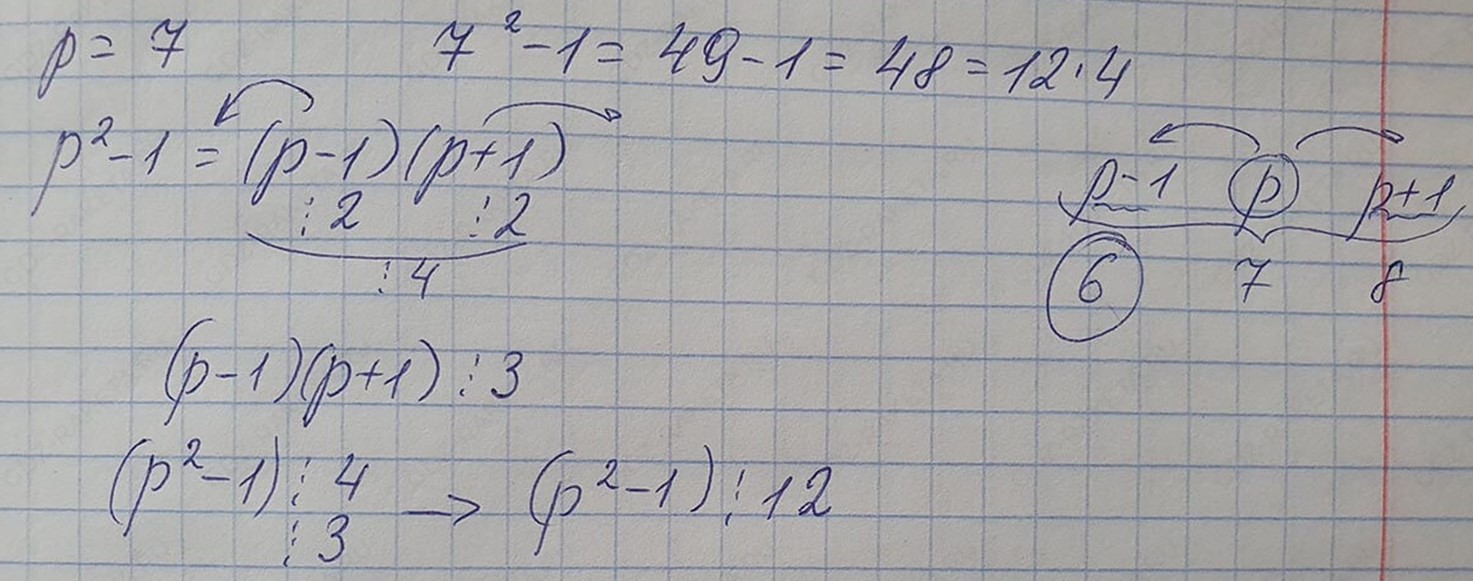 p = 7   7² - 1 = 49 - 1 = 48 = 12 · 4
p² - 1 = (p - 1)(p + 1)
⋮ 2   ⋮ 2
⋮ 4
p - 1   p   p + 1
6   7   8
(p - 1)(p + 1) ⋮ 3
(p² - 1) ⋮ 4 → (p² - 1) ⋮ 12
⋮ 3